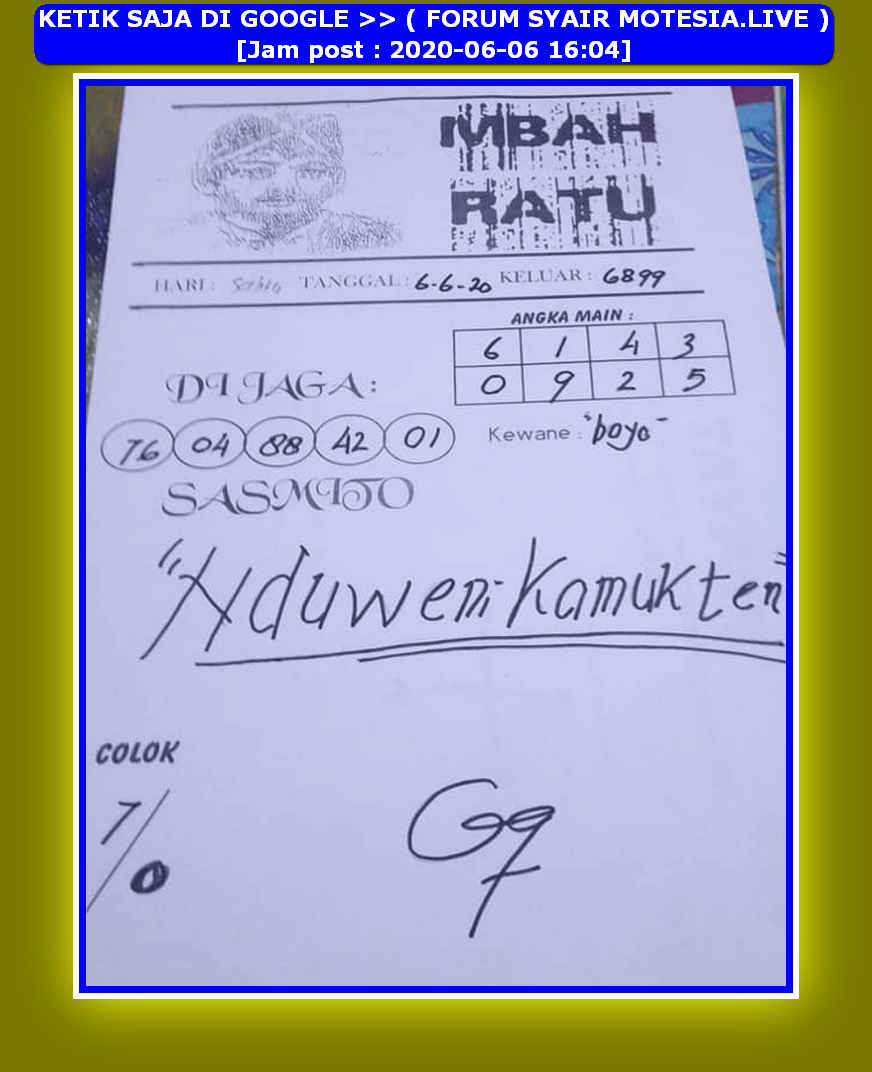 KETIK SAJA DI GOOGLE >> ( FORUM SYAIR MOTESIA.LIVE )
[Jam post : 2020-06-06 16:04]
MBAH
RATU
HARI : Sabtu TANGGAL : 6-6-20 KELUAR : 6899
ANGKA MAIN :
6 1 4 3
0 9 2 5
DI JAGA :
76 04 88 42 01
Kewane : "boyo"
SASMITO
"Nduweni Kamukten"
COLOK
7/0